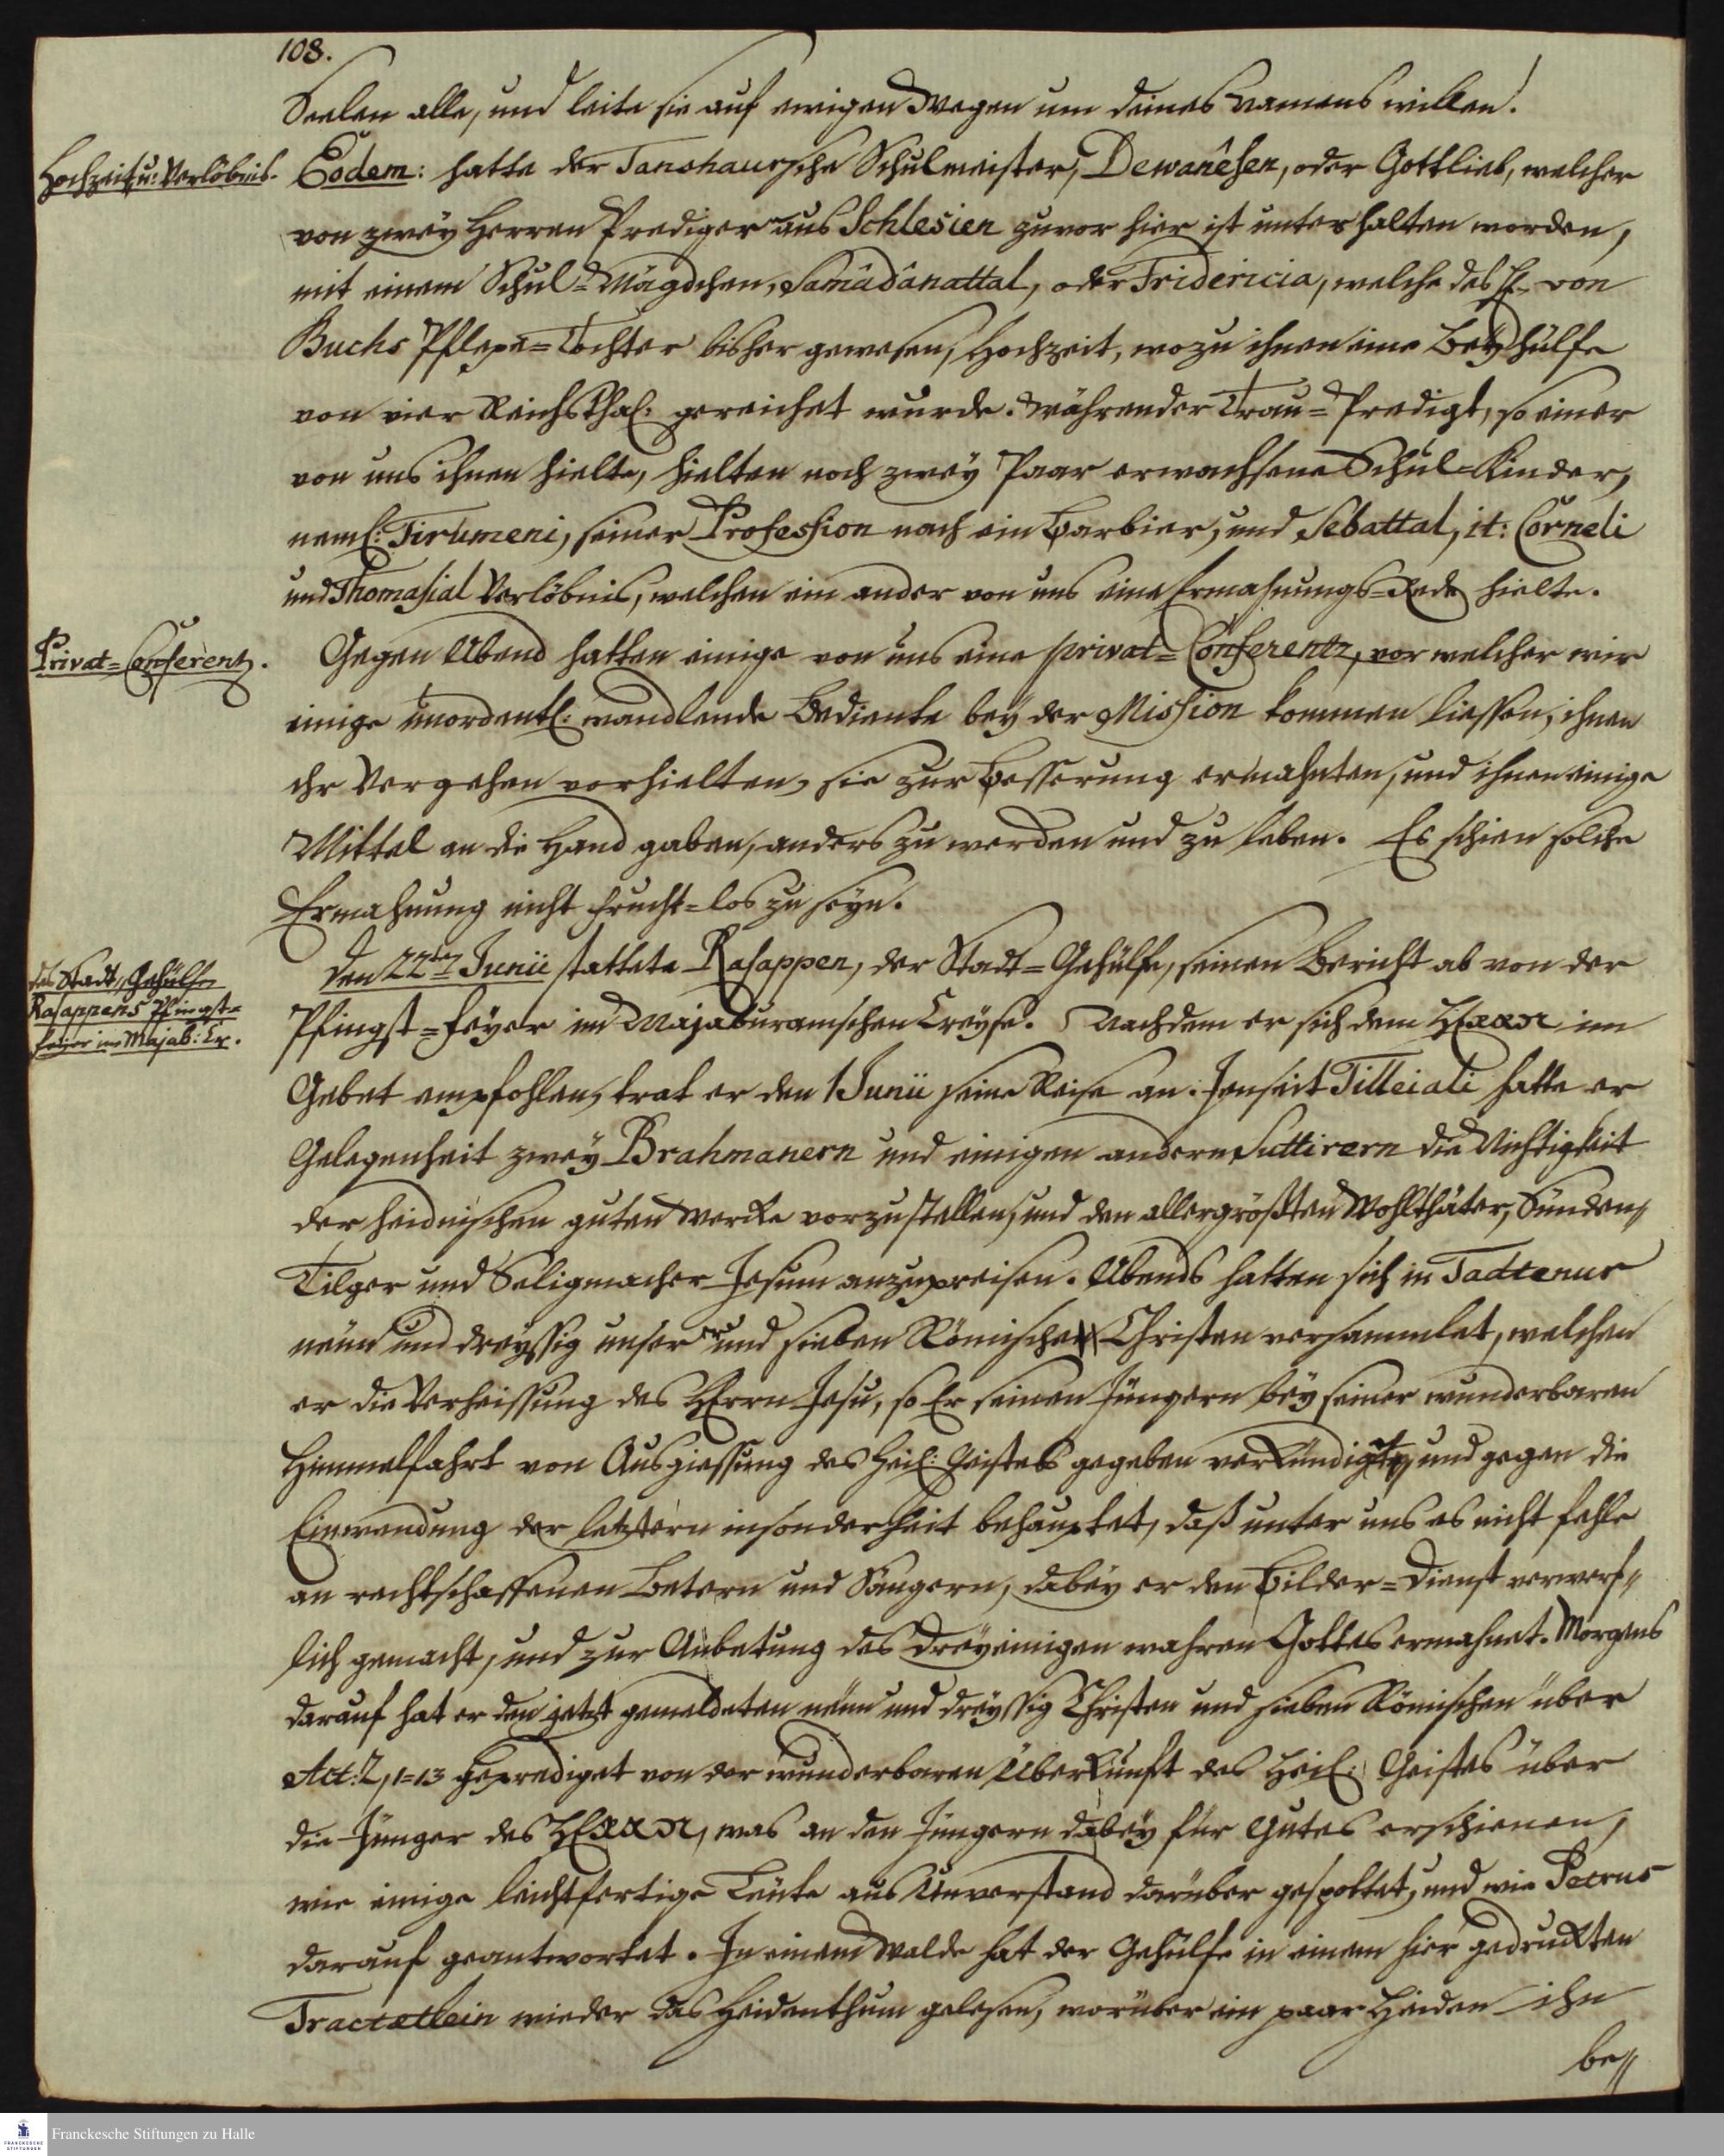 108.
Seelen alle, und leite sie auf ewigen Wegen um deines Namens willen!
Hochzeit u: Verlöbnis.
Eodem: hatte der Tanshaursche Schulmeister, Dewanêsen, oder Gottlieb, welcher
von zwey Herren Prediger aus Schlesien zuvor hier ist unterhalten worden,
mit einem Schul-Mägdchen, Samâdânattal, oder Fridericia, welche des H. von
Buchs Pflege-Tochter bisher gewesen, Hochzeit, wozu ihnen eine Beyhülfe
von vier Reichsthal: gereichet wurde. Währender Trau-Predigt, so einer
von uns ihnen hielte, hielten noch zwey Paar erwachsene Schul-Kinder,
neml: Tirumeni, seiner Profession nach ein Barbier, und Sebattal, it: Corneli
und Thomasial Verlöbnis, welchen ein ander von uns eine Ermahnungs-Rede hielte.
Privat-Conferentz.
Gegen Abend hatten einige von uns eine privat-Conferentz, vor welcher wir
einige unordentl: wandlende Bediente bey der Mission kommen liessen, ihnen
ihr Vergehen vorhielten, sie zur Besserung ermahnten, und ihnen einige
Mittel an die Hand gaben, anders zu werden und zu leben. Es schien solche
Ermahnung nicht frucht-los zu seyn.
des Stadt-Gehülfen
Rasappens Pfingst-
feyer im Majab: Cr.
den 22ten Junii stattete Rasappen, der Stadt-Gehülfe, seinen Bericht ab von der
Pfingst-Feyer im Majaburamschen Creyse. Nachdem er sich dem HErrn im
Gebet empfohlen, trat er den 1 Junii seine Reise an. Jenseit Tilleiali hatte er
Gelegenheit zwey Brahmanern und einigen andern Suttirern die Nichtigkeit
der heidnischen guten Wercke vorzustellen, und den allergrößten Wohlthäter, Sünden-
Tilger und Seligmacher Jesum anzupreisen. Abends hatten sich in Tadtenur
neün und dreyssig unser und sieben Römische Christen versammlet, welchen
er die Verheissung des HErrn Jesu, so Er seinen Jüngern bey seiner wunderbaren
Himmelfahrt von Ausgiessung des Heil: Geistes gegeben verkündiget, und gegen die
Einwendung der letztern insonderheit behauptet, daß unter uns es nicht fehle
an rechtschaffenen Betern und Sängern, dabey er den Bilder-Dienst verwerf-
lich gemacht, und zur Anbetung des dreyeinigen wahren Gottes ermahnet. Morgens
darauf hat er den jetzt gemeldeten neün und dreyssig Christen und sieben Römischen über
Act: 2, 1-13 geprediget von der wunderbaren Überkunft des Heil: Geistes über
die Jünger des HErrn, was an den Jüngern dabey für Gutes erschienen,
wie einige leichtfertige Leute aus Unverstand darüber gespottet, und wie Petrus
darauf geantwortet. In einem Walde hat der Gehülfe in einem hier gedruckten
Tractætlein wieder das Heidenthum gelesen, worüber ein paar Heiden ihn
be-
Franckesche Stiftungen zu Halle